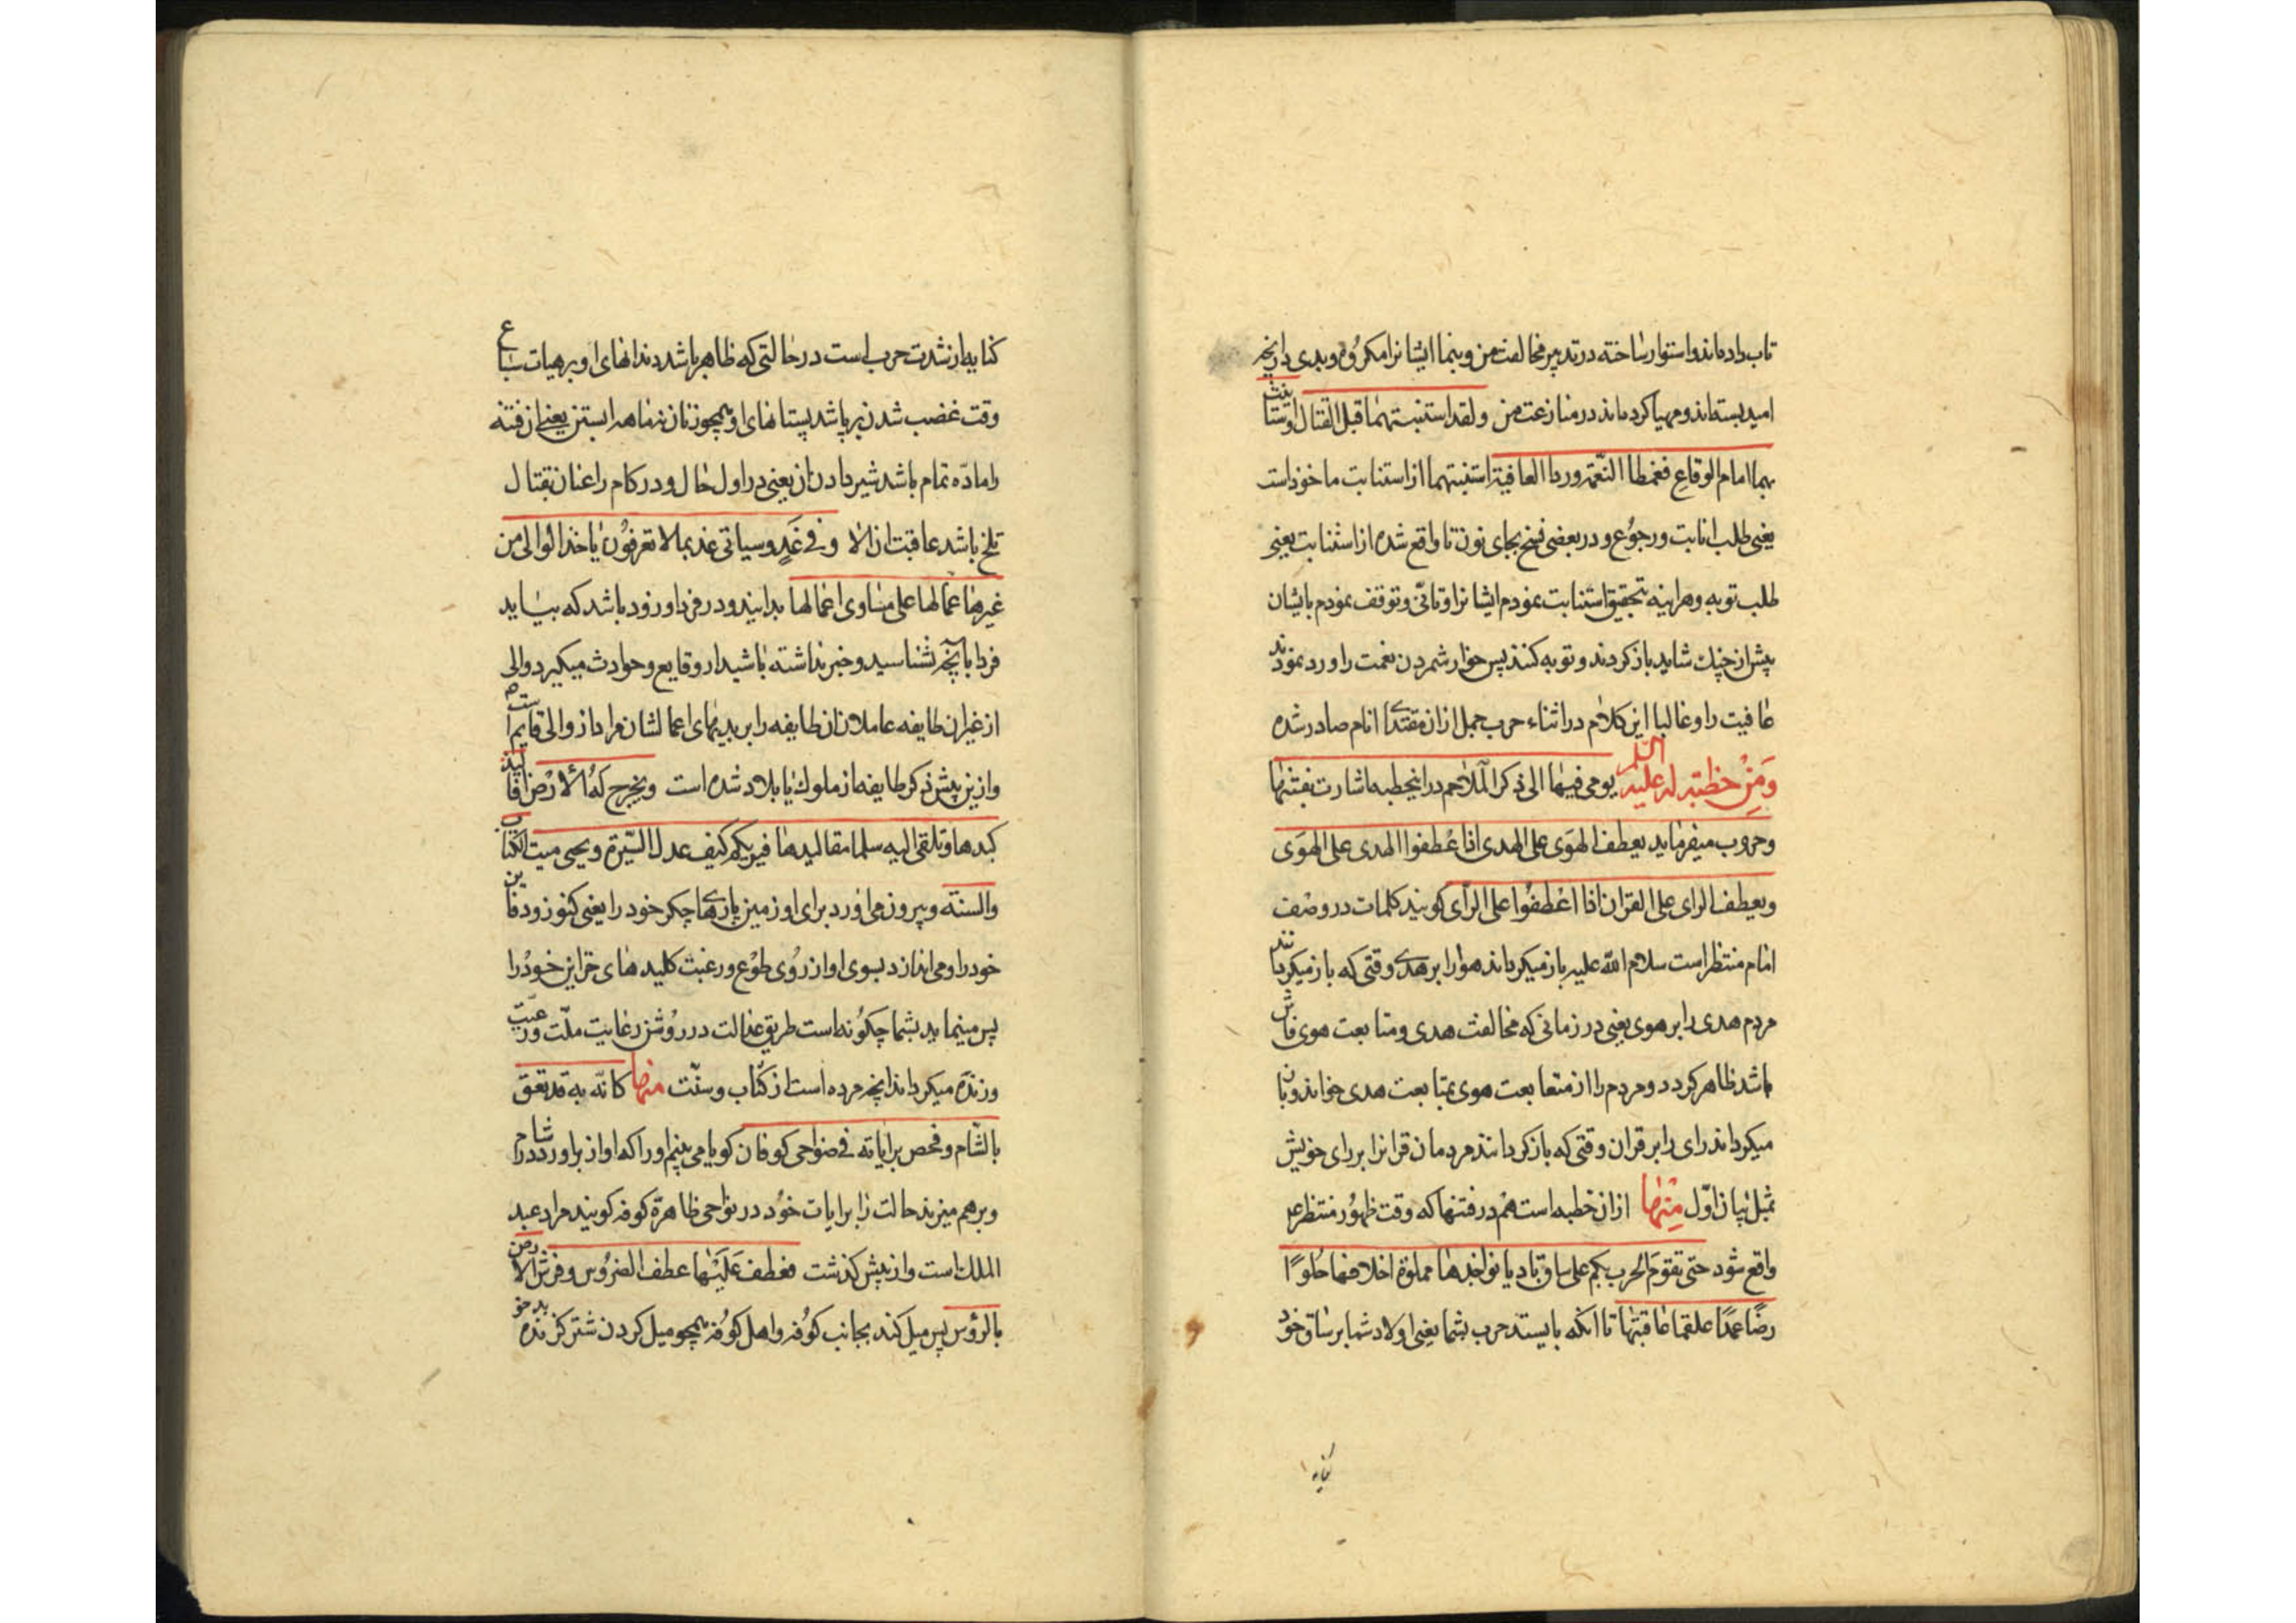 تاب داده‌اند و استوار ساخته در تدبیر مخالفت من و بنما ایشانرا مکروه و بدی در آنچه
امید بسته‌اند و مهیا کرده‌اند در منازعت من ولقد استنبتهما قبل القتال واستانیت
بهما امام الوقاع فغمطا النعمة وردا العافیة استنبتهما از استنابت ماخوذ است
یعنی طلب انابت و رجوع و در بعضی نسخ بجای نون تا واقع شده از استتابت یعنی
طلب توبه و هراینه بتحقیق استتابت نمودم ایشانرا و تانی و توقف نمودم بایشان
پیش از جنك شاید بازکردند و توبه کنند پس خوار شمردن نعمت را و رد نمودند
عافیت را و غالبا این کلام در اثناء حرب جمل از ان مقتدای انام صادر شده
وَمِنْ خطبة له علیه السلم یومی فیها الی ذکر الملاحم در اینخطبه اشارت بفتنها
و حروب میفرماید یعطف الهوی علی الهدی اذا عطفوا الهدی علی الهوَی
ویعطف الرای علی القران اذا اعطفُوا علی الرّای کویند کلمات در وصف
امام منتظر است سلام الله علیه باز میکرداند هوا را بر هدی وقتی که باز میکردانند
مردم هدی را بر هوی یعنی در زمانی که مخالفت هدی و متابعت هوی فاش
باشد ظاهر کردد و مردم را از متعابعت هوی بمتابعت هدی خواند و باز
میکرداند رای را بر قران وقتی که بازکردانند مردمان قرانرا بر رای خویش
بمثل بیان اوّل مِنْهٰا ازان خطبه است هم در فتنها که وقت ظهُور منتظر ع
واقع شود حتی تقومَ الحرب بکم علی ساق بادیا نواجذها مملوة اخلافها حلوًا
رضاعها علقما عاقبتها تا انکه بایستد حرب بشما یعنی اولاد شما بر ساق خود
کنایه
کنایه از شدت حرب است در حالتی که ظاهر باشد دندانهای او بر هیات سباع
وقت غضب شدن پر باشد پستانهای او همچو زنان نه ماهه ابستن یعنی ان فتنه
را ماده تمام باشد شیر دادن ان یعنی در اول حال و در کام راغبان بقتال
تلخ باشد عاقبت ان الا وفی غَدٍ وسیاتی غد بما لا تعرفُون یاخذ الوالی من
غیرها عمالها علی مساوی اعمالها بدانید و در فردا و زود باشد که بیاید
فردا بآنچه نشناسید و خبر نداشته باشید از وقایع و حوادث میکیرد والی
از غیر ان طایفه عاملان ان طایفه را بر بدیهای اعمالشان مراد از والی قایم است
و ازین پیش ذکر طایفه از ملوك یا بلاد شده است وتخرج لهُ الأرْض افالیذ
کبدها وتلقی الیه سلما مقالیدها فیریکم کیف عدل السّیرة ویحیی میت الکتاب
والسنة و بیرون می‌اورد برای او زمین پارهای جکر خود را یعنی کنوز و دفاین
خود را و می‌اندازد بسوی او از رُوی طوْع و رغبت کلیدهای خزاین خودْ را
پس مینماید بشما چکوُنه است طریق عدالت در روُش رعایت ملّت و رعیّت
و زنده میکرداند انچه مرده است از کتاب و سنّت منها کانّه به قد نعق
بالشّام وفحص برایاته فی ضواحی کوفان کویا می‌بینم او را که اواز براورد در شام
و برهم میزند حالت را برایات خوُد در نواحی ظاهرهٔ کوفه کویند مراد عبد
الملك است و از پیش کذشت فعطف عَلَیْهٰا عطف الضرُوس وفرش الارض
بالرؤس پس میل کند بجانب کوُفه و اهل کوُفه همچو میل کردن شتر کزنده بدخو